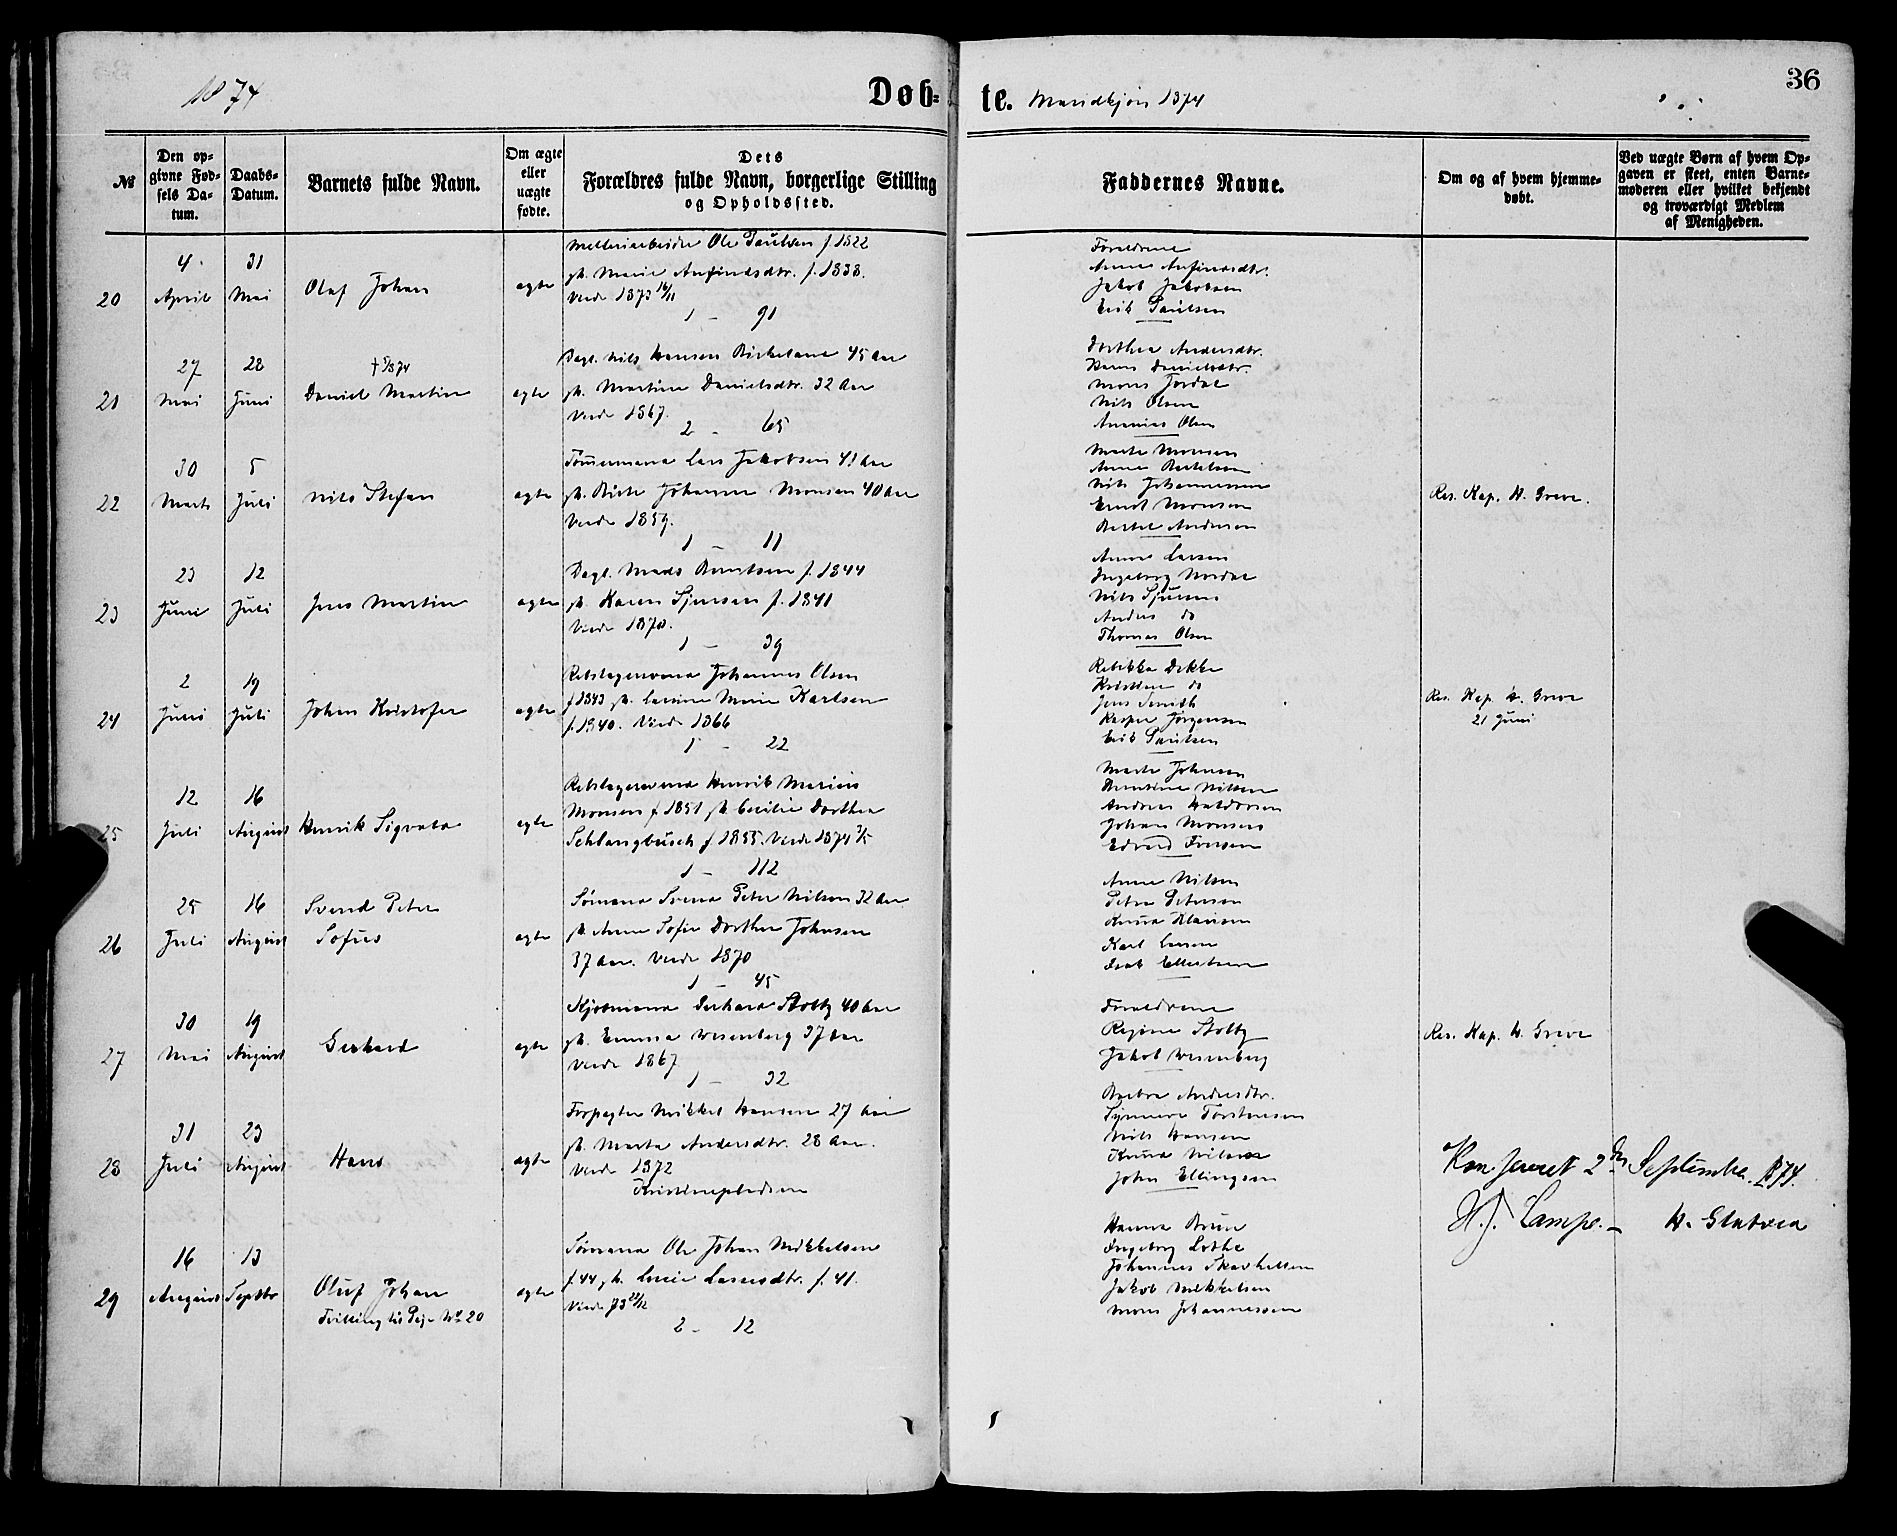 1874
Døb=
te. Mandkjøn 1874
36
№
Den op=
givne Fød=
sels Da=
tum.
Daabs=
Datum.
Barnets fulde Navn.
Om ægte
eller
uægte
fødte.
Dets
Forældres fulde Navn, borgerlige Stilling
og Opholdssted.
Faddernes Navne.
Om og af hvem hjemme=
døbt.
Ved uægte Børn af hvem Op=
gaven er skeet, enten Barne=
moderen eller hvilket bekjendt
og troværdigt Medlem
af Menigheden.
20
4
April
31
Mai
Olaf Johan
ægte
Ole Paulsen f. 1822
gh. Marie Anfindsdtr. f. 1838.
Viede 1873 16/11
1 - 91
Forældrene
Anne Anfindsdtr.
Jakob Jakobsen
Erik Paulsen
21
27
Mai
28
Juni
† 5/8 74
Daniel Martin
ægte
Dagl. Nils Hansen Birkeland 45 Aar
gh. Martine Danielsdtr. 32 Aar
Viede 1867.
2 - 65
Dorthea Andersdtr.
Danielsdtr.
Mons Jordal
Nils Olsen
Ananias Olsen
22
30
Marts
5
Juli
Nils Stefan
ægte
Tømmermand Lars Jakobsen 41 Aar
gh. Birte Johanne Monsen 40 Aar
Viede 1859.
1 - 11
Marte Monsen
Anne Bertelsen
Nils Johannessen
Monsen
Bertel Andersen
Res. Kap. H. Greve.
23
23
Juni
12
Juli
Jens Martin
ægte
Dagl. Mads Berntsen f. 1844
gh. Karen Sjursen f. 1841
Viede 1870.
1 - 39
Anne Larsen
Ingeborg Nordal
Nils Sjursen
Anders do
Thomas Olsen
24
2
Juni
19
Juli
Johan Kristofer
ægte
Rebslagersvend Johannes Olsen
f 1843 gh. Lovise Marie Karlsen
f. 1840. Viede 1866
1 - 22
Rebekka Dekke
Kristine do
Jens Smith
Kasper Jørgensen
Erik Paulsen
Res. Kap. H. Greve
21 Juni
25
12
Juli
16
August
Henrik Sigvald
ægte
Rebslagersvend Henrik Marius
Monsen f 1851 gh. Cecilie Dorthea
Schlangbusch f. 1855. Viede 1874 3/5
1 - 112
Marte Johnsen
Nilsen
Andreas Haldorsen
Johan Monsen
Edvard
26
25
Juli
16
August
Svend Peter
Sofus
ægte
Sømand Svend Peter Nilsen 32 Aar
gh. Anne Sofie Dorthea Johnsen
37 Aar. Viede 1870
1 - 45
Anne Nilsen
Petra Petersen
Knud Klausen
Karl Larsen
Isak Ellertsen
27
30
Mai
19
August
Gerhard
ægte
Kjøbmand Gerhard Stoltz 40 Aar
gh. Emma Wesenberg 37 Aar
Viede 1867
1 - 32
Forældrene
Regine Stoltz
Jakob Wesenberg
Res. Kap. H. Greve
28
31
Juli
23
August
Hans
ægte
Forpagter Mikkel Hansen 27 Aar
gh. Marta Andersdtr. 28 Aar.
Viede 1872
Andersdtr.
Synneve Torstensen
Nils Hansen
Knud Nilsen
John Ellingsen
Konfereret 2den September 1874.
H. J. Lampe. - H.
29
16
August
13
Septbr
Oluf Johan
Tvilling til Pige № 20
ægte
Sømand Ole Johan Mikkelsen
f. 44 gh. Lovise Larsdtr. f. 41.
Viede 73
2 - 12
Hanna Brun
Ingeborg Lothe
Johannes
Jakob Mikkelsen
Mons Johannessen